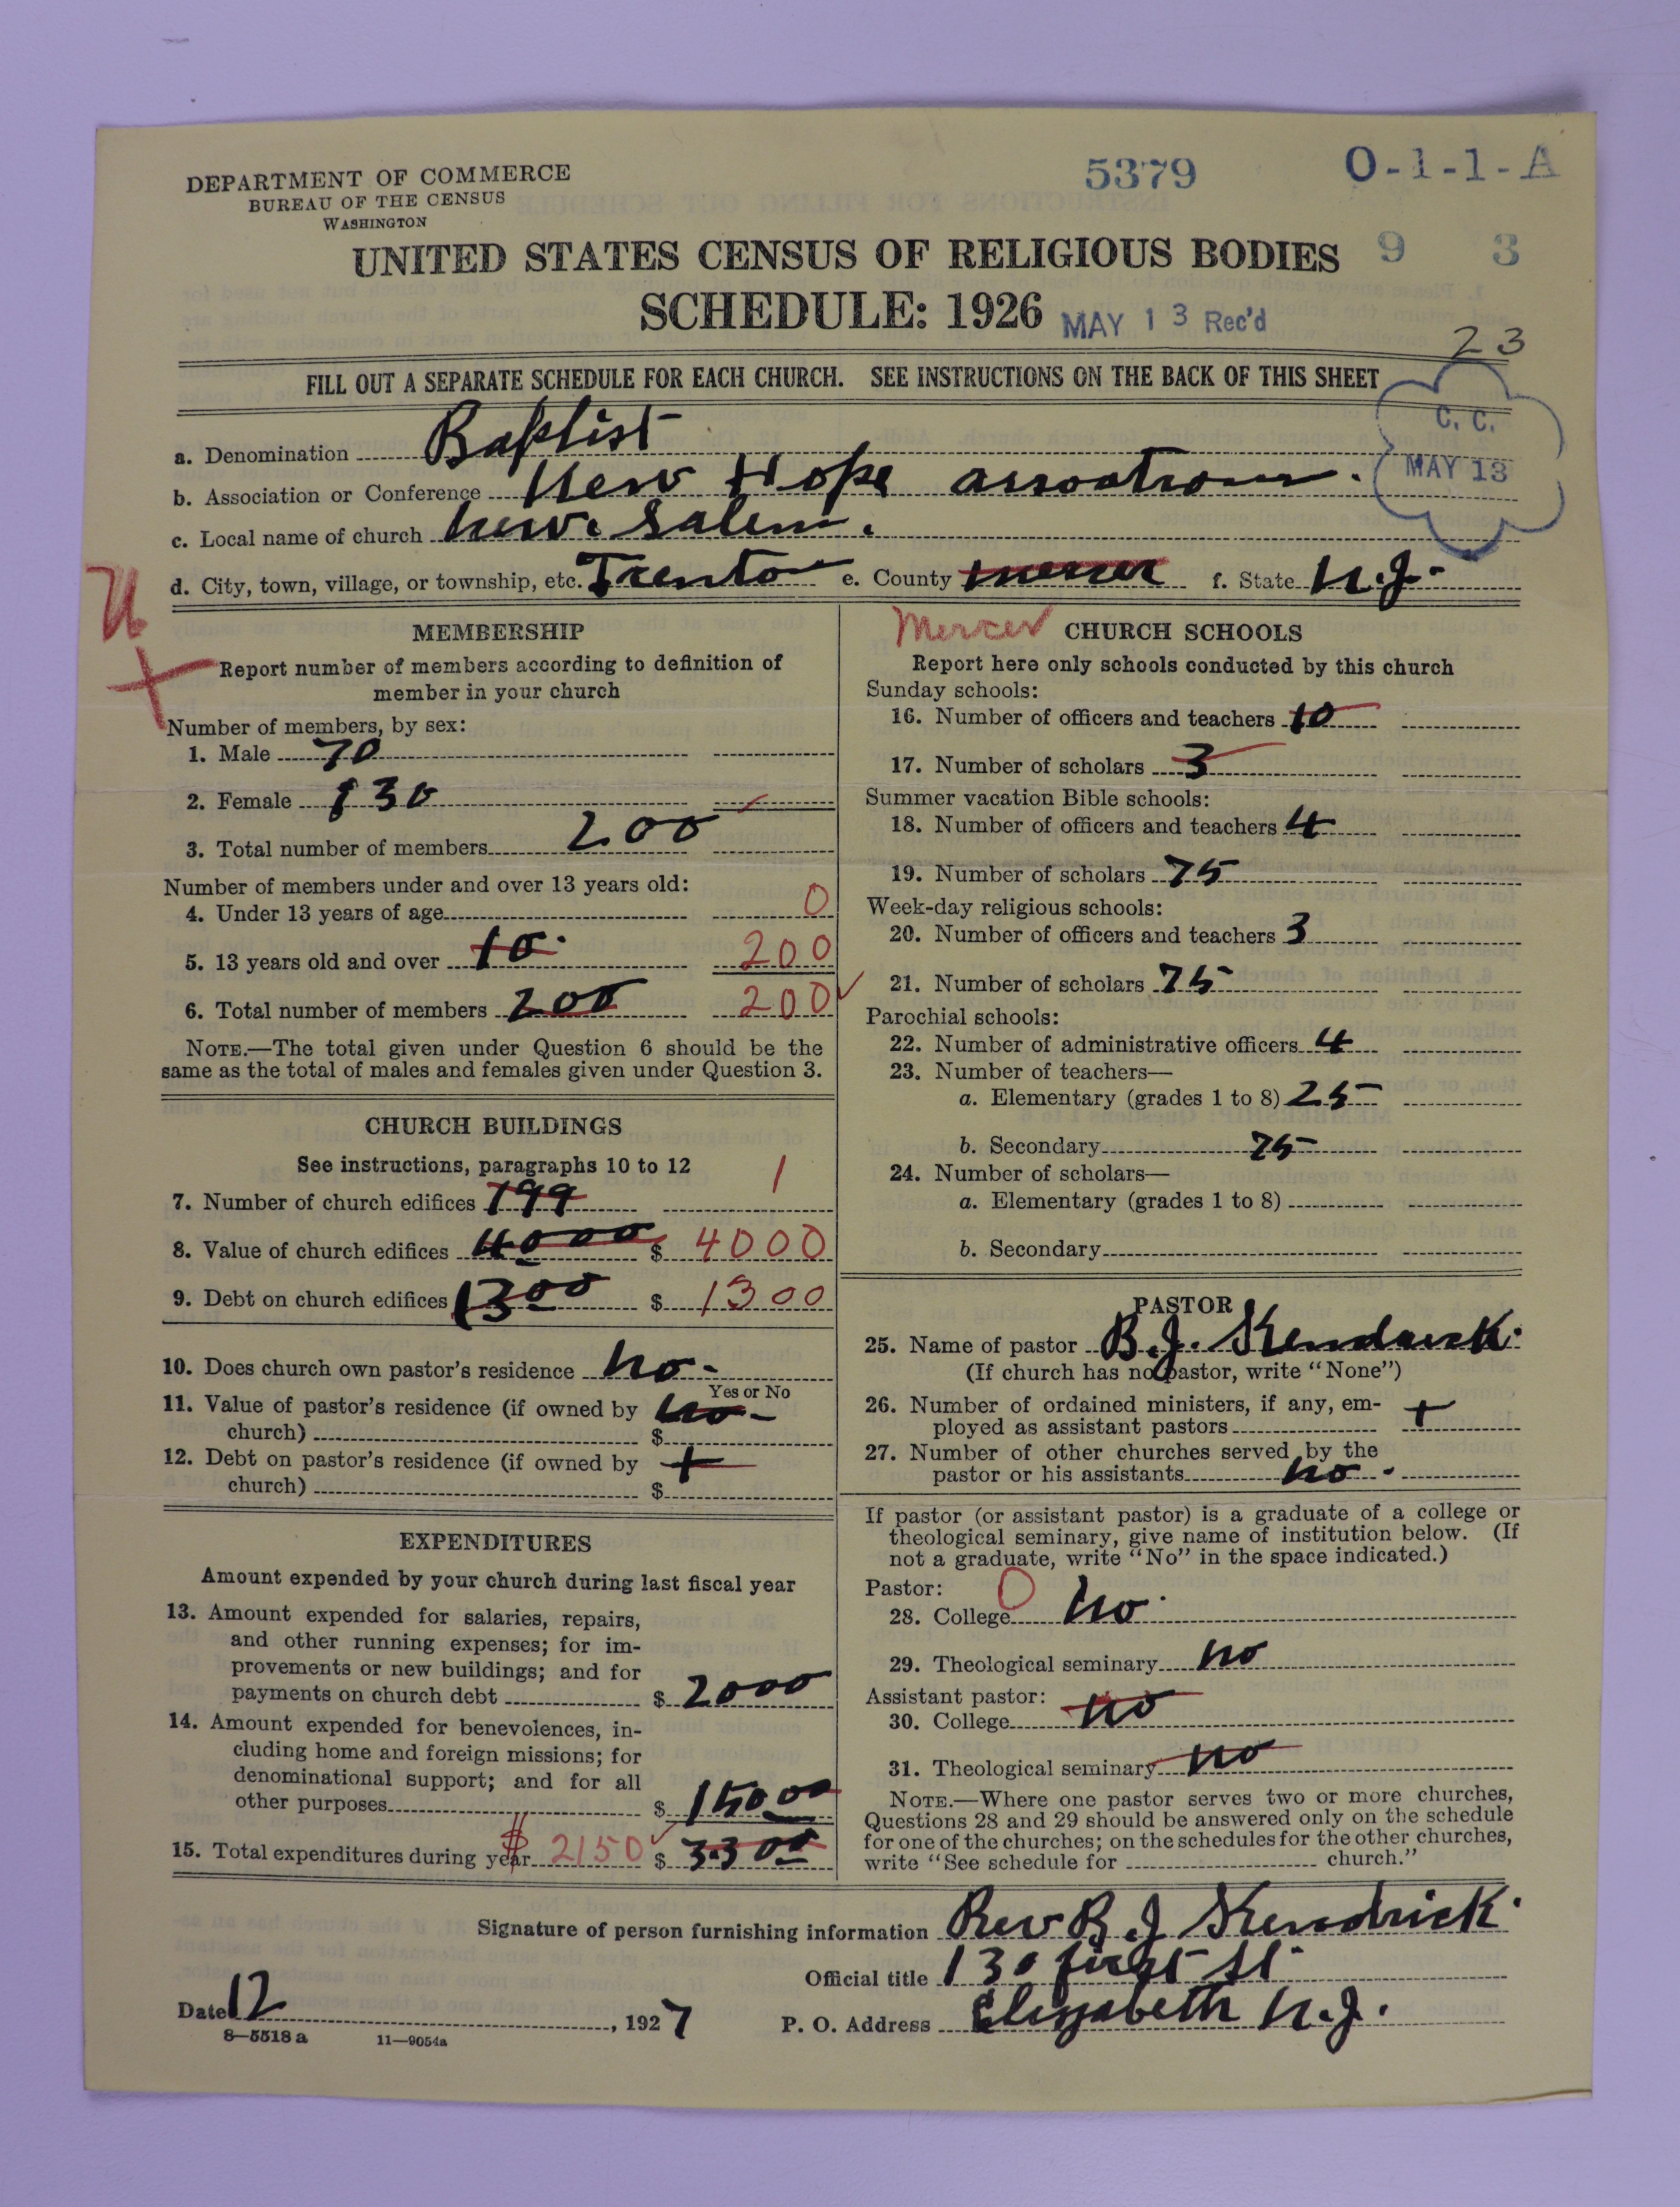 DEPARTMENT OF COMMERCE
BUREAU OF THE CENSUS
WASHINGTON
5379
O-1-1-A
UNITED STATES CENSUS OF RELIGIOUS BODIES
9 3
SCHEDULE: 1926
MAY 13 Rec'd
23
FILL OUT A SEPARATE SCHEDULE FOR EACH CHURCH. SEE INSTRUCTIONS ON THE BACK OF THIS SHEET
C. C.
MAY 13
a. Denomination Baptist
b. Association or Conference New Hope assoation.
c. Local name of church new. Salem.
d. City, town, village, or township, etc. Trenton e. County mercer f. State N.J.
MEMBERSHIP
Report number of members according to definition of
member in your church
Number of members, by sex:
1. Male 70
2. Female 130
3. Total number of members 200
Number of members under and over 13 years old:
4. Under 13 years of age 0
5. 13 years old and over 10 200
6. Total number of members 200 200
NOTE.—The total given under Question 6 should be the
same as the total of males and females given under Question 3.
CHURCH BUILDINGS
See instructions, paragraphs 10 to 12
7. Number of church edifices 199 1
8. Value of church edifices 4000 $ 4000
9. Debt on church edifices 1300 $ 1300
10. Does church own pastor's residence no-
Yes or No
11. Value of pastor's residence (if owned by no-
church) $
12. Debt on pastor's residence (if owned by +
church) $
EXPENDITURES
Amount expended by your church during last fiscal year
13. Amount expended for salaries, repairs,
and other running expenses; for im-
provements or new buildings; and for
payments on church debt $ 2000
14. Amount expended for benevolences, in-
cluding home and foreign missions; for
denominational support; and for all
other purposes $ 150 00
15. Total expenditures during year $ 2150 $ 3300
Mercer CHURCH SCHOOLS
Report here only schools conducted by this church
Sunday schools:
16. Number of officers and teachers 10
17. Number of scholars 3
Summer vacation Bible schools:
18. Number of officers and teachers 4
19. Number of scholars 75
Week-day religious schools:
20. Number of officers and teachers 3
21. Number of scholars 75
Parochial schools:
22. Number of administrative officers 4
23. Number of teachers—
a. Elementary (grades 1 to 8) 25
b. Secondary 75
24. Number of scholars—
a. Elementary (grades 1 to 8)
b. Secondary
PASTOR
25. Name of pastor B.J. Kendrick.
(If church has no pastor, write "None")
26. Number of ordained ministers, if any, em-
ployed as assistant pastors +
27. Number of other churches served by the
pastor or his assistants no.
If pastor (or assistant pastor) is a graduate of a college or
theological seminary, give name of institution below. (If
not a graduate, write "No" in the space indicated.)
Pastor: 0
28. College no.
29. Theological seminary no
Assistant pastor:
30. College no
31. Theological seminary no
NOTE.—Where one pastor serves two or more churches,
Questions 28 and 29 should be answered only on the schedule
for one of the churches; on the schedules for the other churches,
write "See schedule for church."
Signature of person furnishing information Rev B.J Kendrick.
Official title 130 first St.
Date 12, 1927
P. O. Address Elizabeth N.J.
8—5518 a 11—9054a